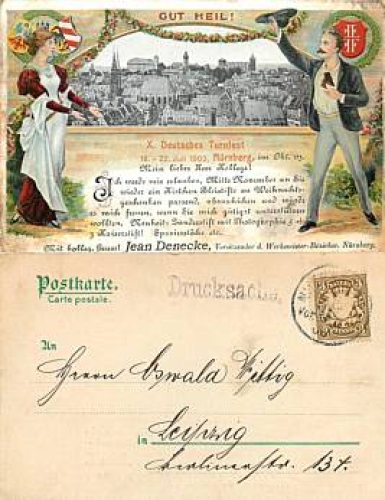 GUT HEIL!
X. Deutsches Turnfest
18.-22. Juli 1903, Nürnberg, im Okt. 03.
Mein lieber Herr Kollege!
Ich werde mir erlauben, Mitte November an Sie
wieder ein Kistchen Bleistifte zu Weihnachts-
geschenken passend, abzuschicken und würde
es mich freuen, wenn Sie mich gütigst unterstützen
wollten. Neuheit: mit Photographie
Kaiserstift!
Mit kolleg. Gruss! Jean Denecke, Vorsitzender d. Werkmeister-Bezirksv. Nürnberg.
Postkarte.
Carte postale.
Drucksache.
An
Herrn Oswald Wittig
in Leipzig
Berlinerstr. 134.